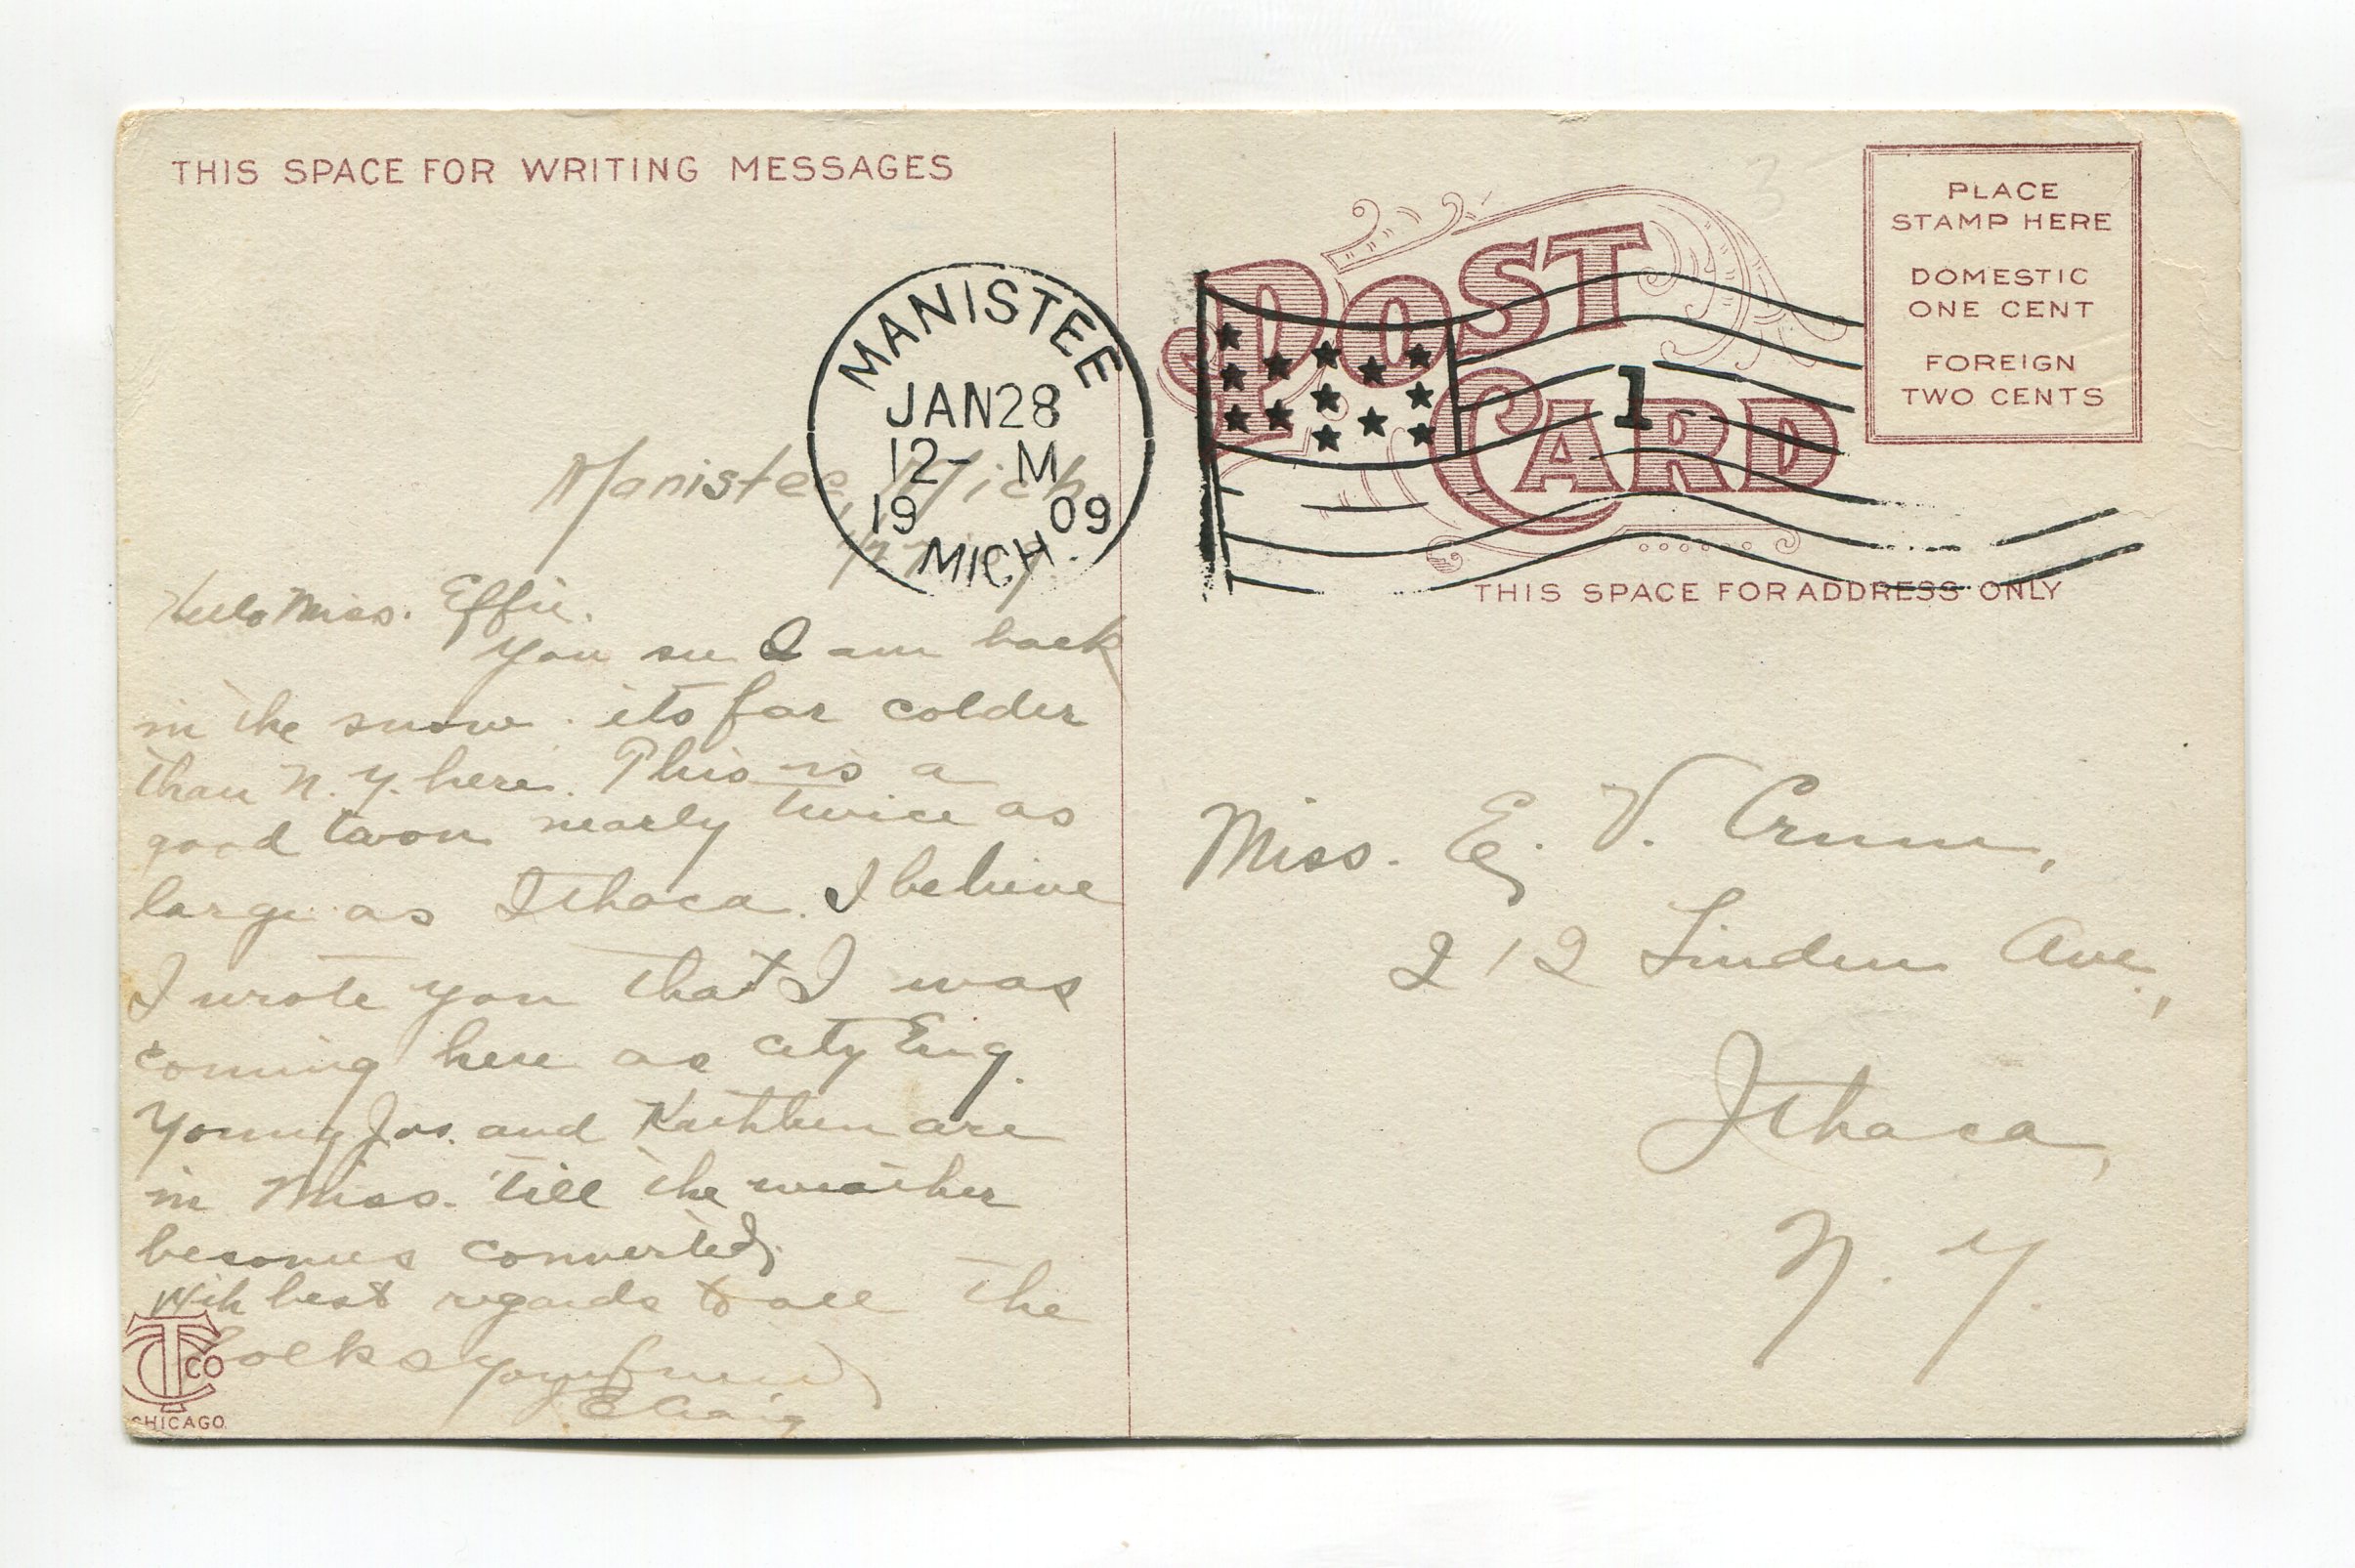 THIS SPACE FOR WRITING MESSAGES
MANISTEE
JAN 28
12- M
19 09
MICH.
Manistee, Mich
Hello Miss. Effie.
You see I am back
in the snow. its far colder
than N. Y. here. This is a
good twon nearly twice as
large as Ithaca. I believe
I wrote you that I was
coming here as city Eng.
Young Jas. and Kathleen are
in Miss. till the weather
becomes converted.
With best regards to all the
folks Your friend
J. E. Craig
TCCO
CHICAGO
POST
CARD
1
PLACE
STAMP HERE
DOMESTIC
ONE CENT
FOREIGN
TWO CENTS
THIS SPACE FOR ADDRESS ONLY
Miss. E. V. Crum,
212 Linden Ave.,
Ithaca,
N. Y.